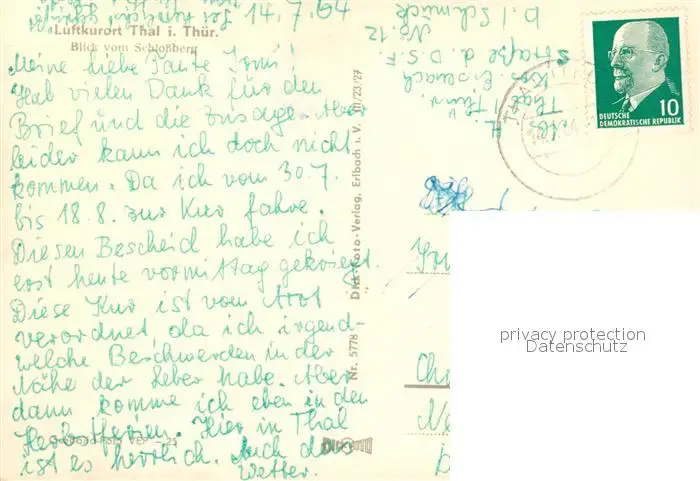 14.7.64
Luftkurort Thal i. Thür.
Blick vom Schloßberg
Meine liebe Tante Tomi!
Hab vielen Dank für den
Brief und die Zusage. Aber
leider kann ich doch nicht
kommen. Da ich vom 30.7.
bis 18.8. zur Kur fahre.
Diesen Bescheid habe ich
erst heute vormittag gekriegt.
Diese Kur ist vom Arzt
verordnet, da ich irgend-
welche Beschwerden in der
Nähe der Leber habe. Aber
dann komme ich eben in den
Herbstferien. Hier in Thal
ist es herrlich. Auch das
Wetter.
Nr. 5778 Dick-Foto-Verlag, Erlbach i. V. III/23/27
b. / Schmück
No. 12
Straße d. D.S.F.
Krs. Eisenach
Thal Thür.
DEUTSCHE
DEMOKRATISCHE REPUBLIK
10
privacy protection
Datenschutz